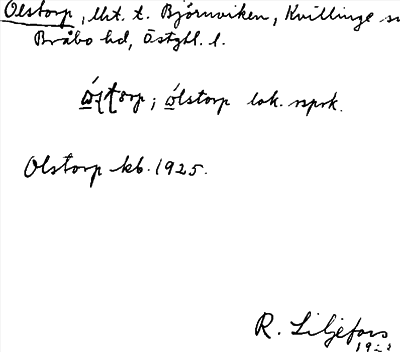 Olstorp, lht. t. Björnviken, Kvillinge s
Bråbo hd, Östgtl. l.
ólstorp lok. uprk.
Olstorp kb. 1925.
R. Liljefors